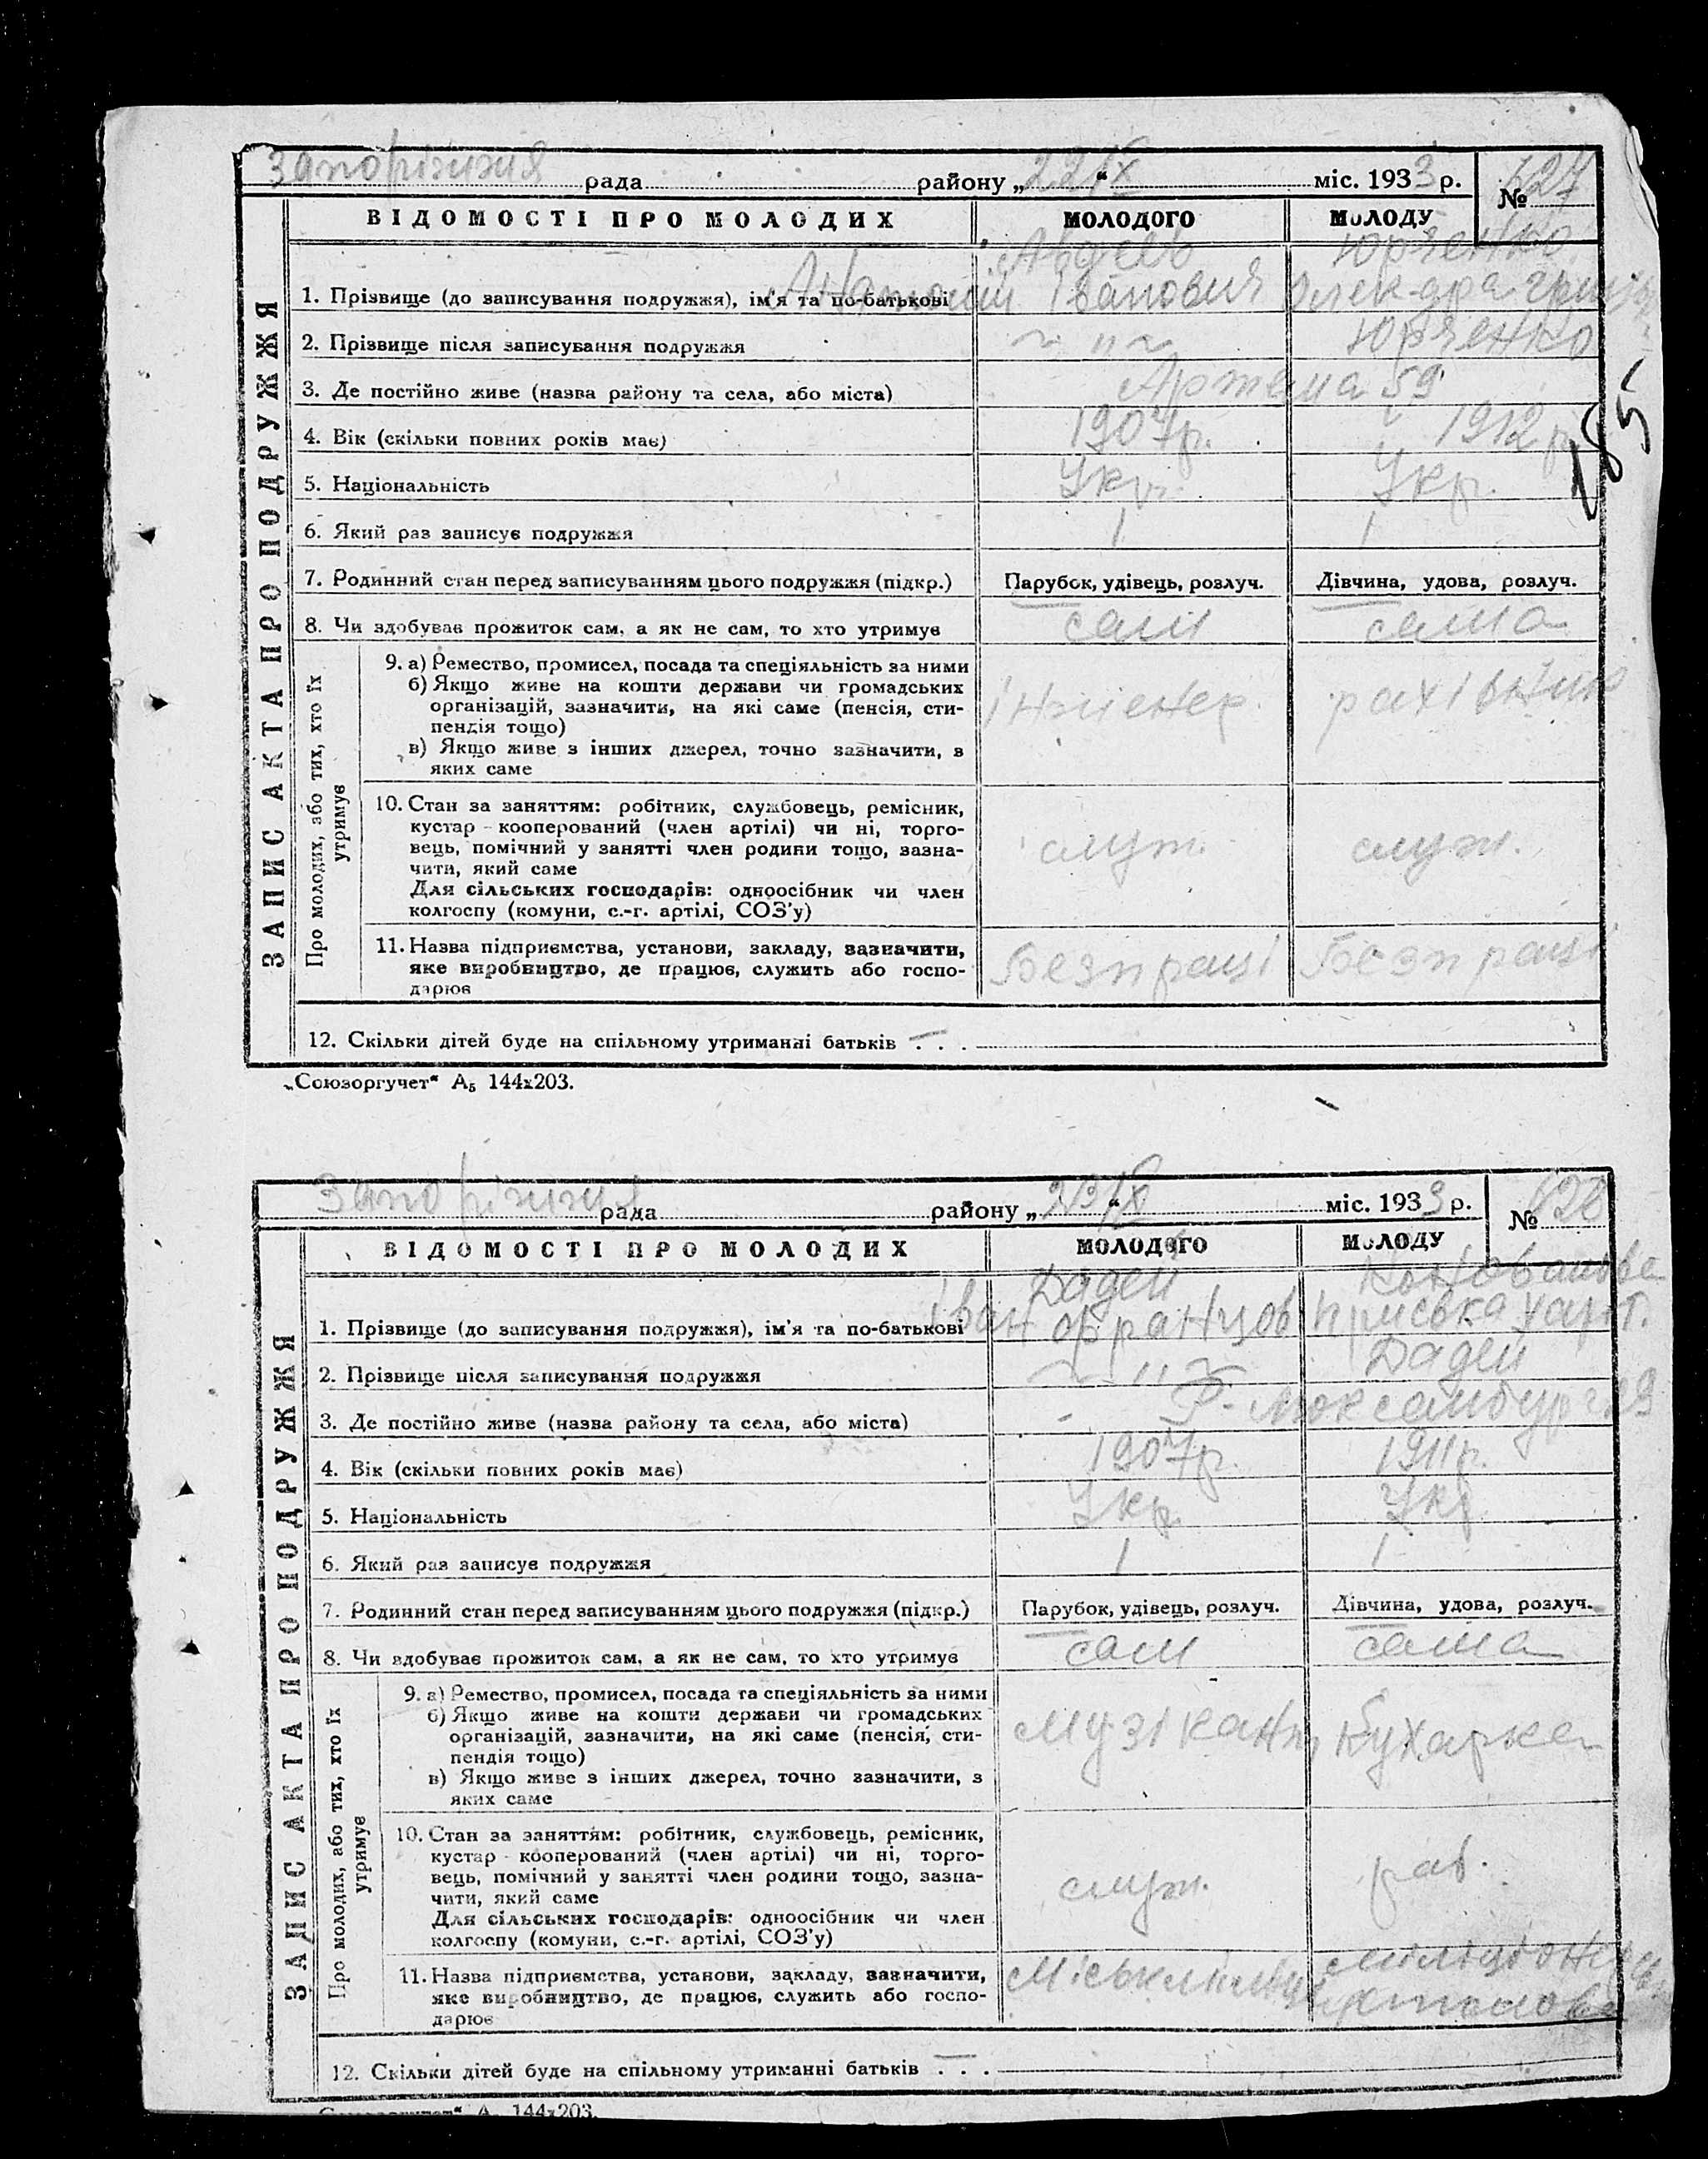 Запоріжжя рада району „22/IX“ міс. 1933 р. № 627
ВІДОМОСТІ ПРО МОЛОДИХ МОЛОДОГО МОЛОДУ
ЗАПИС АКТА ПРО ПОДРУЖЖЯ
Юрченко
1. Прізвище (до записування подружжя), ім'я та по-батькові Іванович
2. Прізвище після записування подружжя ~ " ~ Юрченко
3. Де постійно живе (назва району та села, або міста) Артема 59
4. Вік (скільки повних років має) 1907р. 1912р
5. Національність Укр. Укр.
6. Який раз записує подружжя 1 1
7. Родинний стан перед записуванням цього подружжя (підкр.) Парубок, удівець, розлуч. Дівчина, удова, розлуч.
8. Чи здобуває прожиток сам, а як не сам, то хто утримує сам сама
Про молодих, або тих, хто їх утримує
9. а) Ремество, промисел, посада та спеціяльність за ними
б) Якщо живе на кошти держави чи громадських
організацій, зазначити, на які саме (пенсія, сти-
пендія тощо)
в) Якщо живе з інших джерел, точно зазначити, з
яких саме
інженер рахівник
10. Стан за заняттям: робітник, службовець, ремісник,
кустар - кооперований (член артілі) чи ні, торго-
вець, помічний у занятті член родини тощо, зазна-
чити, який саме
Для сільських господарів: одноосібник чи член
колгоспу (комуни, с.-г. артілі, СОЗ'у)
служ. служ.
11. Назва підприємства, установи, закладу, зазначити,
яке виробництво, де працює, служить або госпо-
дарює
Без праці Без праці
12. Скільки дітей буде на спільному утриманні батьків . . .
„Союзоргучет“ А₅ 144х203.
185
Запоріжжя рада району „23/IX“ міс. 1933 р. № 628
ВІДОМОСТІ ПРО МОЛОДИХ МОЛОДОГО МОЛОДУ
ЗАПИС АКТА ПРО ПОДРУЖЖЯ
Дадей
1. Прізвище (до записування подружжя), ім'я та по-батькові Іван Францов
2. Прізвище після записування подружжя ~ " ~ Дадей
3. Де постійно живе (назва району та села, або міста) Р-Люксембург
4. Вік (скільки повних років має) 1907р. 1911р.
5. Національність Укр. Укр
6. Який раз записує подружжя 1 1
7. Родинний стан перед записуванням цього подружжя (підкр.) Парубок, удівець, розлуч. Дівчина, удова, розлуч.
8. Чи здобуває прожиток сам, а як не сам, то хто утримує сам сама
Про молодих, або тих, хто їх утримує
9. а) Ремество, промисел, посада та спеціяльність за ними
б) Якщо живе на кошти держави чи громадських
організацій, зазначити, на які саме (пенсія, сти-
пендія тощо)
в) Якщо живе з інших джерел, точно зазначити, з
яких саме
музікант кухарка
10. Стан за заняттям: робітник, службовець, ремісник,
кустар - кооперований (член артілі) чи ні, торго-
вець, помічний у занятті член родини тощо, зазна-
чити, який саме
Для сільських господарів: одноосібник чи член
колгоспу (комуни, с.-г. артілі, СОЗ'у)
служ. раб.
11. Назва підприємства, установи, закладу, зазначити,
яке виробництво, де працює, служить або госпо-
дарює
12. Скільки дітей буде на спільному утриманні батьків . . .
„Союзоргучет“ А₅ 144х203.